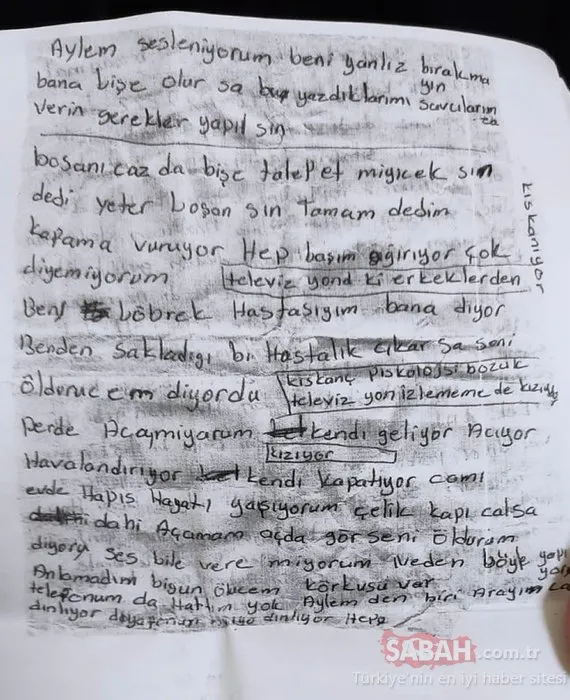 Aylem sesleniyorum beni yanlız bırakma
yın
bana bişe olur sa bu yazdıklarımı savcıların
za
verin gerekler yapıl sın
boşanıcaz da bişe talep et miyicek sin
dedi yeter boşan sin Tamam dedim
kıskanıyor
kafama vuruyor Hep başım ağırıyor çok
diyemiyorum televiz yond ki erkeklerden
Ben böbrek Hastasıyım bana diyor
Benden sakladığı bi Hastalık çıkar sa seni
öldürücem diyordu kıskanç piskolojsi bozuk
televiz yon izlememe de kızıyor
perde Açamiyorum kendi geliyor Acıyor
kızıyor
Havalandırıyor kendi kapatıyor camı
evde Hapis Hayatı yaşıyorum çelik kapı çalsa
dahi Açamam açda gör seni öldürüm
diyory ses bile vere miyorum Neden böyle yapı
yor
Anlamadım bigün ölücem körkusu var
telefonum da Hattım yok Aylem den biri Arayım ca
dinliyor dinliyor Hepp
SABAH.com.tr
Türkiye'nin en iyi haber sitesi